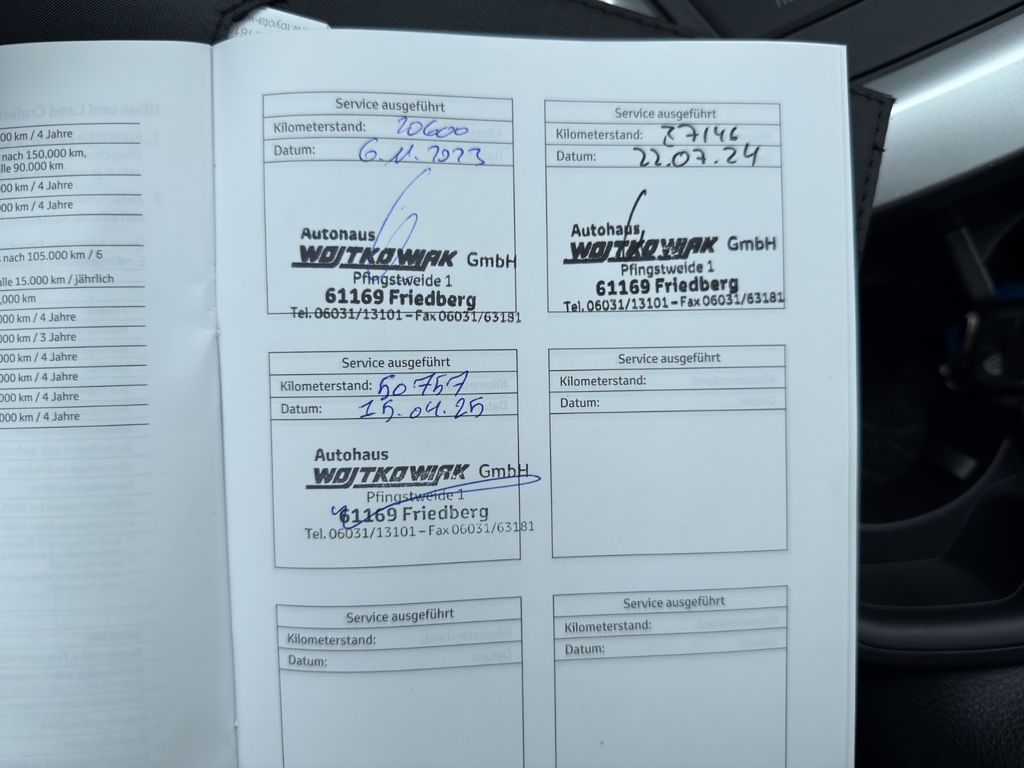 00 km / 4 Jahre
nach 150.000 km,
lle 90.000 km
000 km / 4 Jahre
000 km / 4 Jahre
nach 105.000 km / 6
alle 15.000 km / jährlich
000 km
000 km / 4 Jahre
000 km / 3 Jahre
000 km / 4 Jahre
000 km / 4 Jahre
000 km / 4 Jahre
000 km / 4 Jahre
Service ausgeführt
Kilometerstand: 20600
Datum: 6.11.2023
Autohaus
WOJTKOWIAK GmbH
Pfingstweide 1
61169 Friedberg
Tel. 06031/13101 – Fax 06031/63181
Service ausgeführt
Kilometerstand: 37146
Datum: 22.07.24
Autohaus
WOJTKOWIAK GmbH
Pfingstweide 1
61169 Friedberg
Tel. 06031/13101 – Fax 06031/63181
Service ausgeführt
Kilometerstand: 50757
Datum: 15.04.25
Autohaus
WOJTKOWIAK GmbH
Pfingstweide 1
61169 Friedberg
Tel. 06031/13101 – Fax 06031/63181
Service ausgeführt
Kilometerstand:
Datum:
Service ausgeführt
Kilometerstand:
Datum:
Service ausgeführt
Kilometerstand:
Datum: